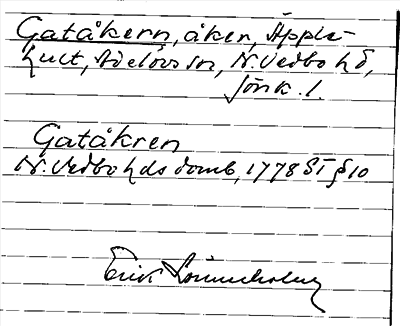 Gatåkern, åker, Äpple-
hult, Adelövs sn, N. Vedbo hd,
Jönk. l.
Gatåkren
N. Vedbo hds domb, 1778 ST § 10
Erik